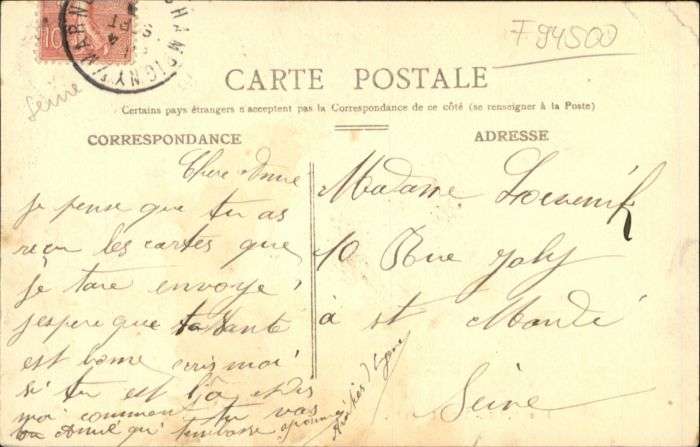 10
CHAMPIGNY
MARNE
Seine
F 94500
CARTE POSTALE
Certains pays étrangers n'acceptent pas la Correspondance de ce côté (se renseigner à la Poste)
CORRESPONDANCE
Chere Anne
je pense que tu as
reçu les cartes que
je tare envoyé
jespere que ta santé
est bonne écris moi
si tu est là et dis
moi comment tu vas
qui
ADRESSE
Madame
10 Rue Joly
à St Mandé
Seine